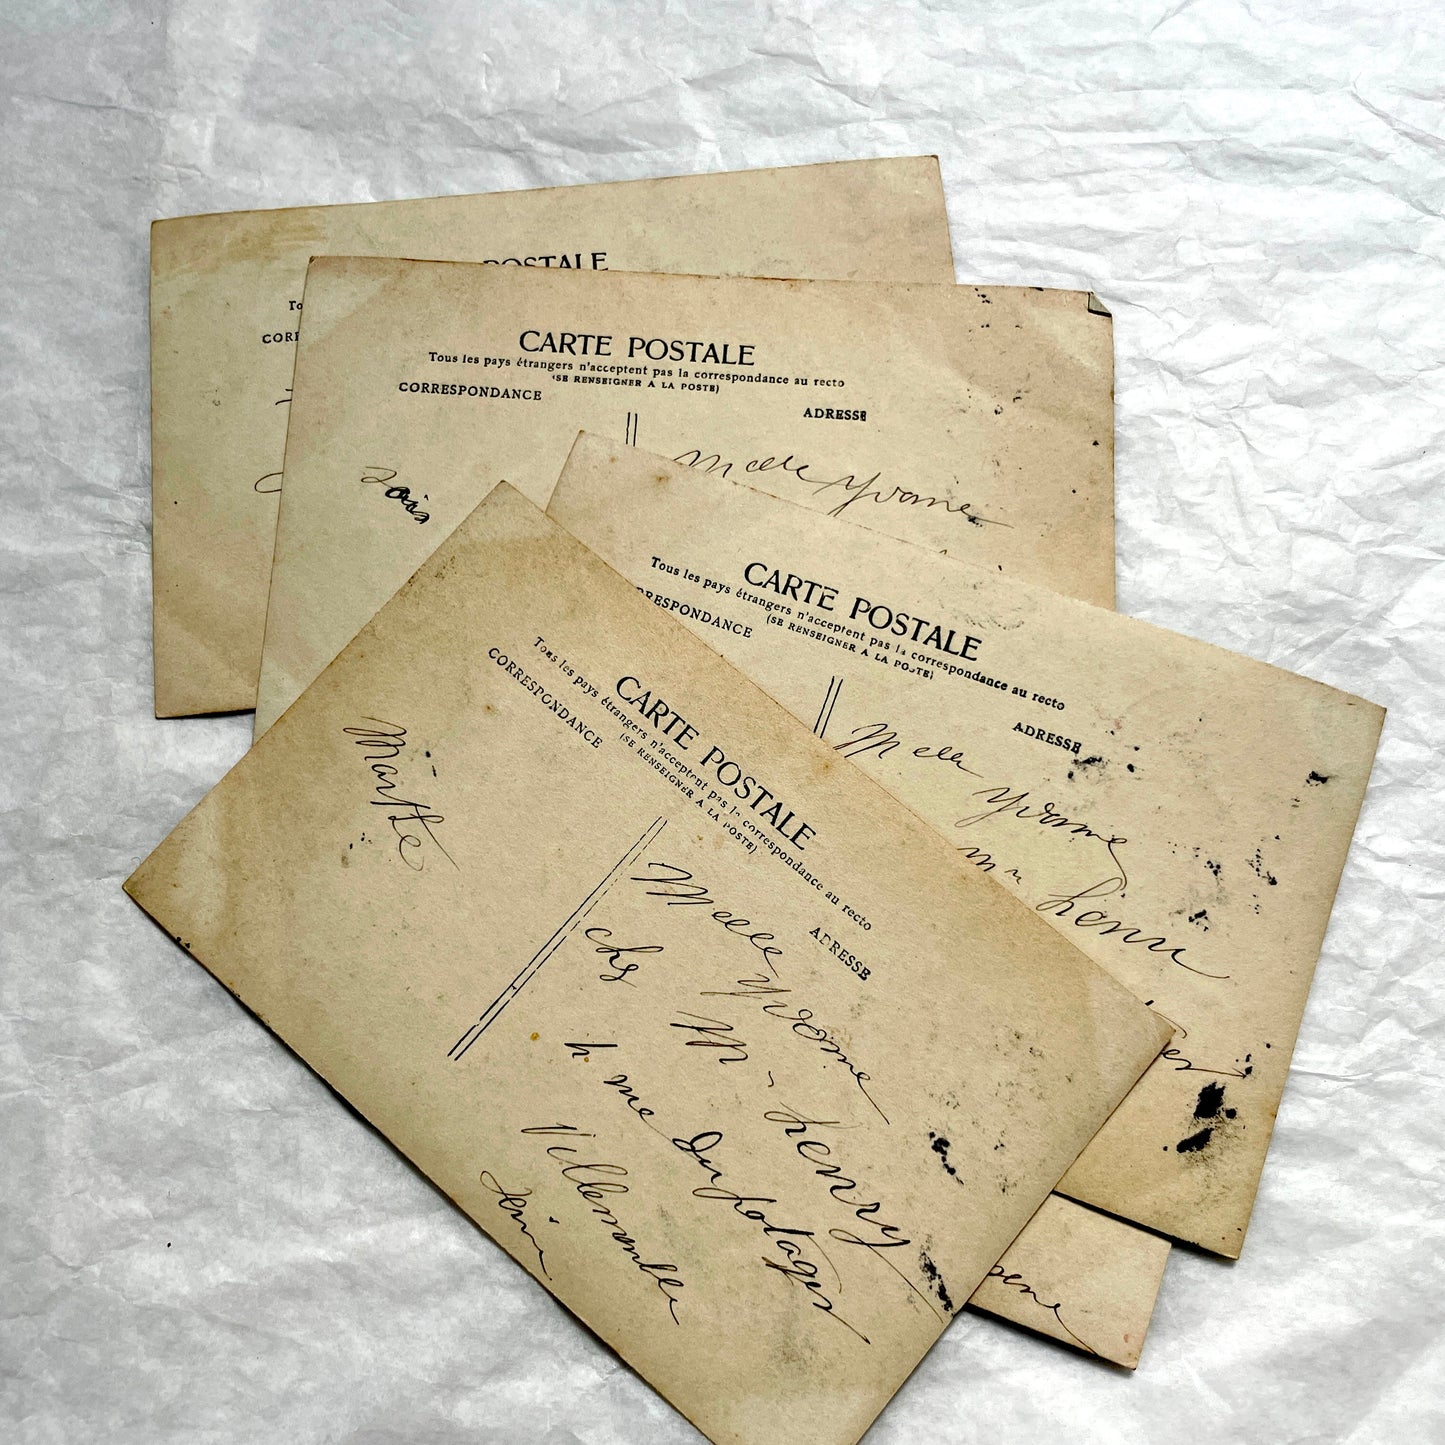 POSTALE
To
CORR
CARTE POSTALE
Tous les pays étrangers n'acceptent pas la correspondance au recto
(SE RENSEIGNER A LA POSTE)
CORRESPONDANCE
ADRESSE
Melle Yvonne
CARTE POSTALE
Tous les pays étrangers n'acceptent pas la correspondance au recto
(SE RENSEIGNER A LA POSTE)
RRESPONDANCE
ADRESSE
Melle Yvonne
Mr henri
CARTE POSTALE
Tous les pays étrangers n'acceptent pas la correspondance au recto
(SE RENSEIGNER A LA POSTE)
CORRESPONDANCE
ADRESSE
Marthe
Melle Yvonne
chs Mr henry
rue du potager
Villemomble
Seine